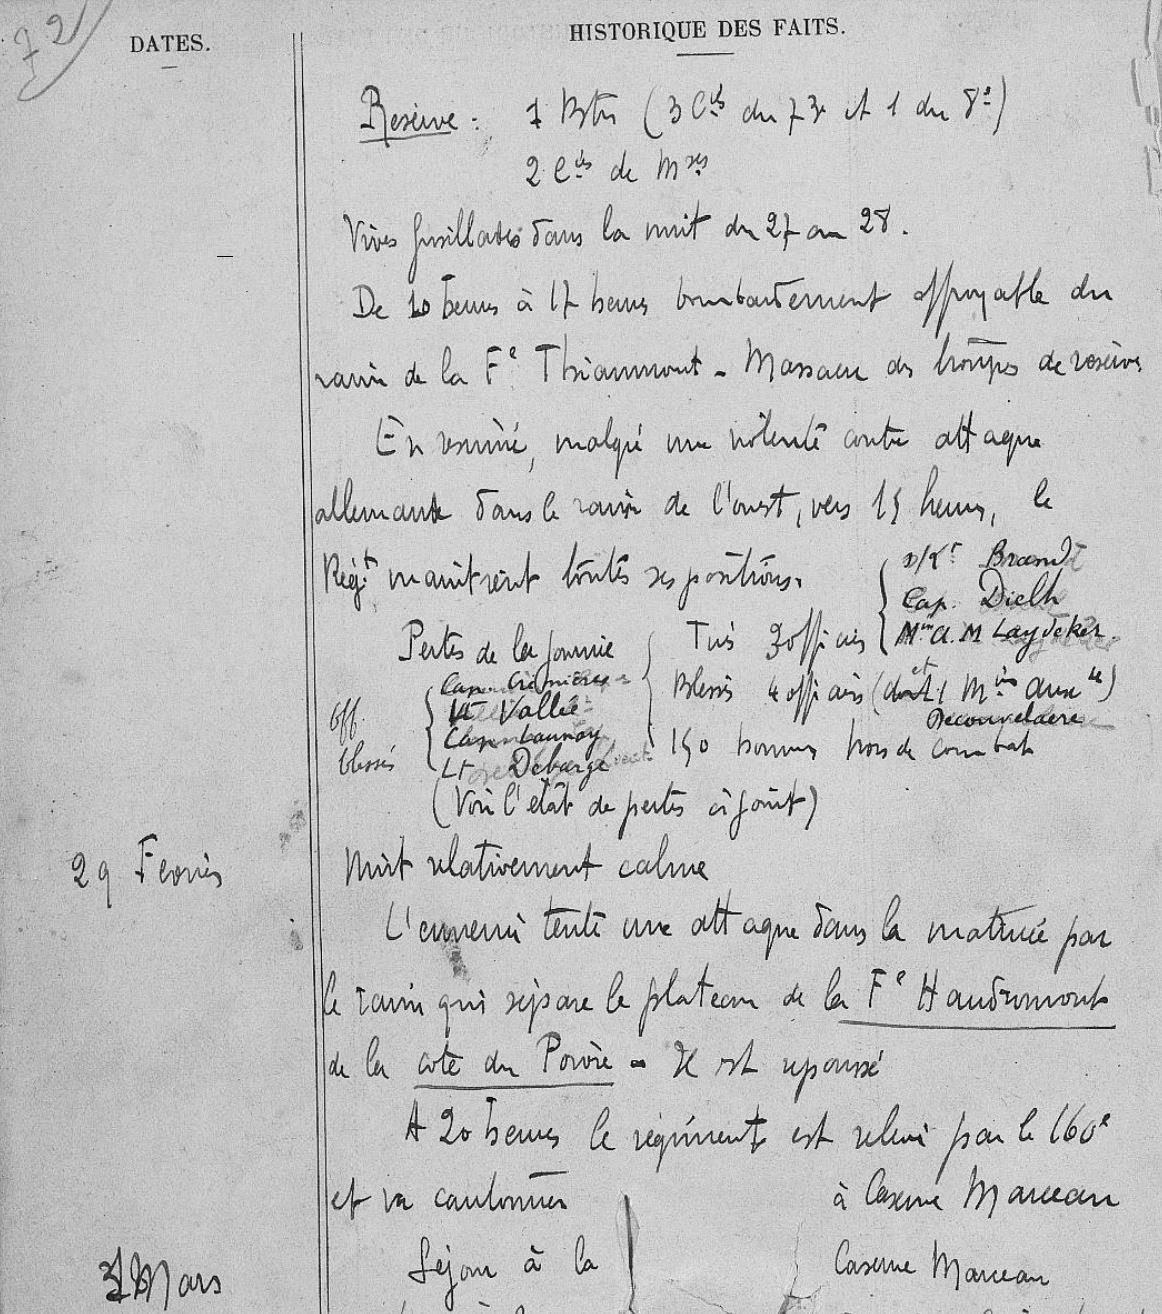 72
DATES.
HISTORIQUE DES FAITS.
Reserve : 1 Bton (3 Cies du 73e et 1 du 8e)
2 Cies de Mses
Vives fusillades dans la nuit du 27 au 28.
De 10 heures à 17 heures bombardement effroyable du
ravin de la Fe Thiaumont - Massacre des troupes de reserve
En resumé, malgré une violente contre attaque
allemande dans le ravin de l'ouest, vers 15 heures, le
Régt maintient toutes ses positions.
Pertes de la journée
Tués 3 officiers
Brandt
Cap. Dielh
Min a. M Laydeker
Blessés 4 officiers (dont et 1 Min Auxre)
Decouvelaere
150 hommes hors de combat
Off.
blessés
Cap. Cremières
Lt Vallée
Cap Launay
Lt Debarge
(Voir l'état de pertes ci joint)
29 Fevrier
Nuit relativement calme
L'ennemi tente une attaque dans la matinée par
le ravin qui sépare le plateau de la Fe Haudromont
de la cote du Poivre - Il est repoussé
A 20 heures le régiment est relevé par le 160e
et va cantonner à Caserne Marceau
Mars
Séjour à la Caserne Marceau